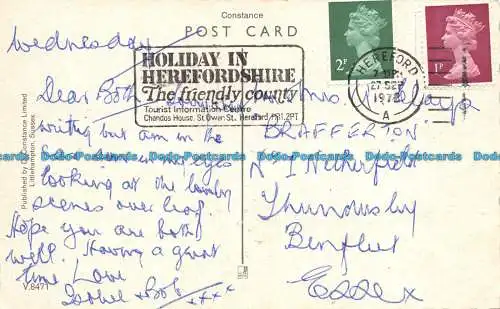 Constance
POST CARD
Wednesday
HOLIDAY IN
HEREFORDSHIRE
The friendly county
Tourist Information Centre
Chandos House, St. Owen St., Hereford. HR1.2PT
HEREFORD
27 SEP
A
2P
1P
Dear Both
writing but am in the
looking at the lovely
scenes over leaf.
Hope you are both
well. Having a great
time Love
Isobel & Bob
xxxx
BRAFFERTON
Thundersley
Benfleet
Essex
Published by Constance Limited
Littlehampton, Sussex.
V.8471
Donada-Postcards